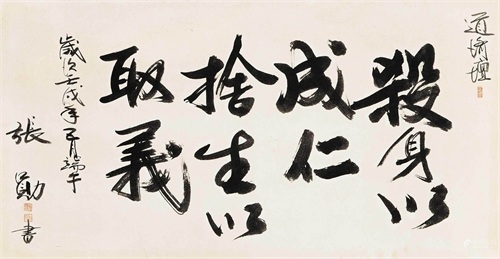 道瑜壇
殺身以
成仁
捨生以
取義
歲次壬戌年五月端午
張勛書